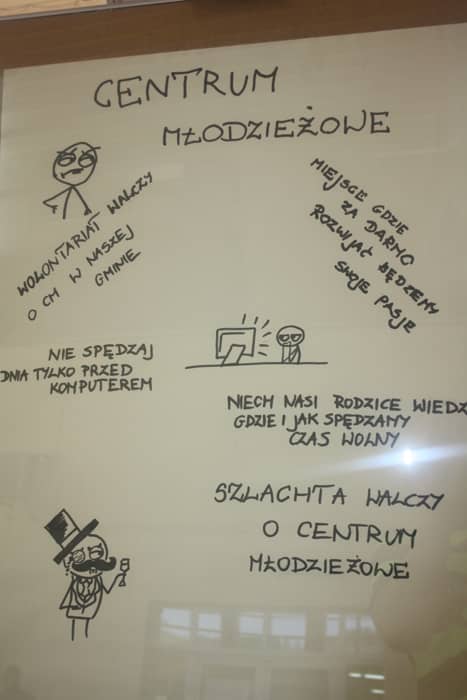 CENTRUM
MŁODZIEŻOWE
WOLONTARIAT WALCZY
O CM W NASZEJ
GMINIE
MIEJSCE GDZIE
ZA DARMO
ROZWIJAĆ BĘDZIEMY
SWOJE PASJE
NIE SPĘDZAJ
DNIA TYLKO PRZED
KOMPUTEREM
NIECH NASI RODZICE WIEDZ
GDZIE I JAK SPĘDZAMY
CZAS WOLNY
SZLACHTA WALCZY
O CENTRUM
MŁODZIEŻOWE